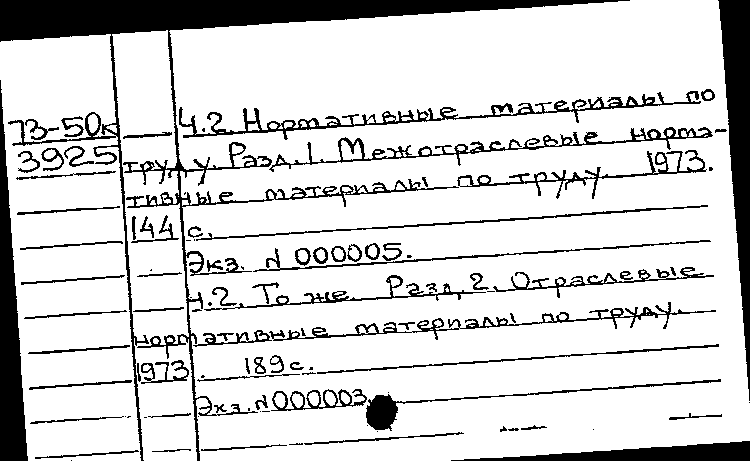 73-50к Ч.2. Нормативные материалы по
3925 труду. Разд.1. Межотраслевые норма-
тивные материалы по труду. 1973.
144 с.
Экз. N 000005.
Ч.2. То же. Разд. 2. Отраслевые
нормативные материалы по труду.
1973. 189 с.
Экз. N 000003.